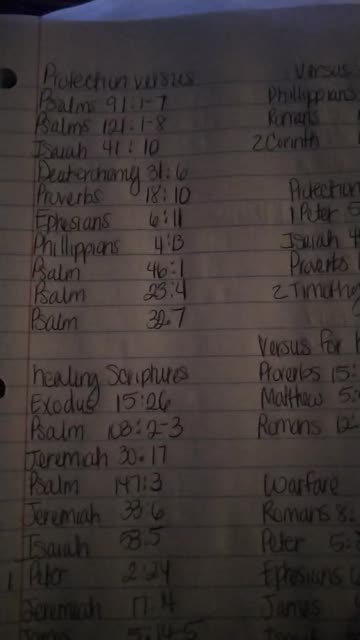 Protection versus
Psalms 91:1-7
Psalms 121:1-8
Isaiah 41:10
Deuterchomy 31:6
Proverbs 18:10
Ephesians 6:11
Phillippians 4:13
Psalm 46:1
Psalm 23:4
Psalm 32.7
healing Scriptures
Exodus 15:26
Psalm 108:2-3
Jeremiah 30.17
Psalm 147:3
Jeremiah 33:6
Isaiah 53.5
1 Peter 2:24
Jeremiah 17:14
5:14-5
Versus
Phillippians
Romans
2 Corinth
Protection
1 Peter 5
Isaiah 4
Proverbs 1
2 Timothy
Versus for
Proverbs 15:
Matthew 5:
Romans 12
Warfare
Romans 8:
Peter 5:
Ephesians
James